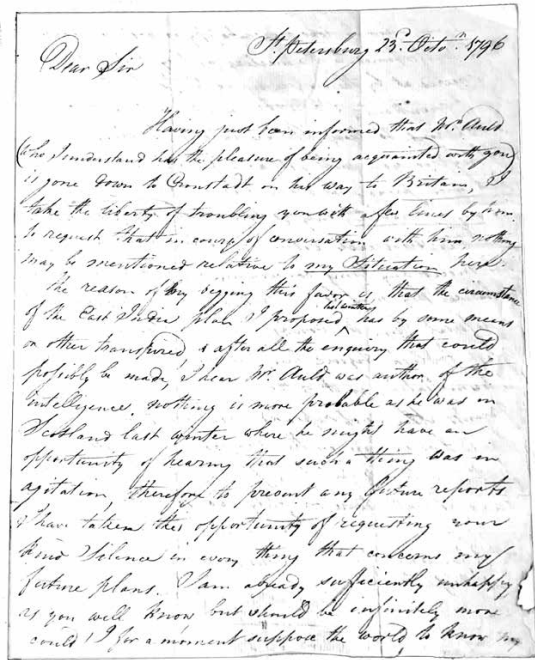 St. Petersburg 23d. Octor. 1796
Dear Sir
Having just been informed that Mr. Auld
(who I understand has the pleasure of being acquainted with you)
is gone down to Cronstadt on his way to Britain, I
take the liberty of troubling you with a few lines by him
to request that in course of conversation with him nothing
may be mentioned relative to my Situation here
the reason of my begging this favor is that the circumstance
of the East India plan I proposed last winter has by some means
or other transpired, & after all the enquiry that could
possibly be made, I hear Mr. Auld was author of the
Intelligence. nothing is more probable as he was in
Scotland last winter where he might have an
opportunity of hearing that such a thing was in
agitation, therefore to prevent any future reports
I have taken this opportunity of requesting your
kind Silence in every thing that concerns my
future plans. I am already sufficiently unhappy
as you well know but should be infinitely more
could I for a moment suppose the world to know my